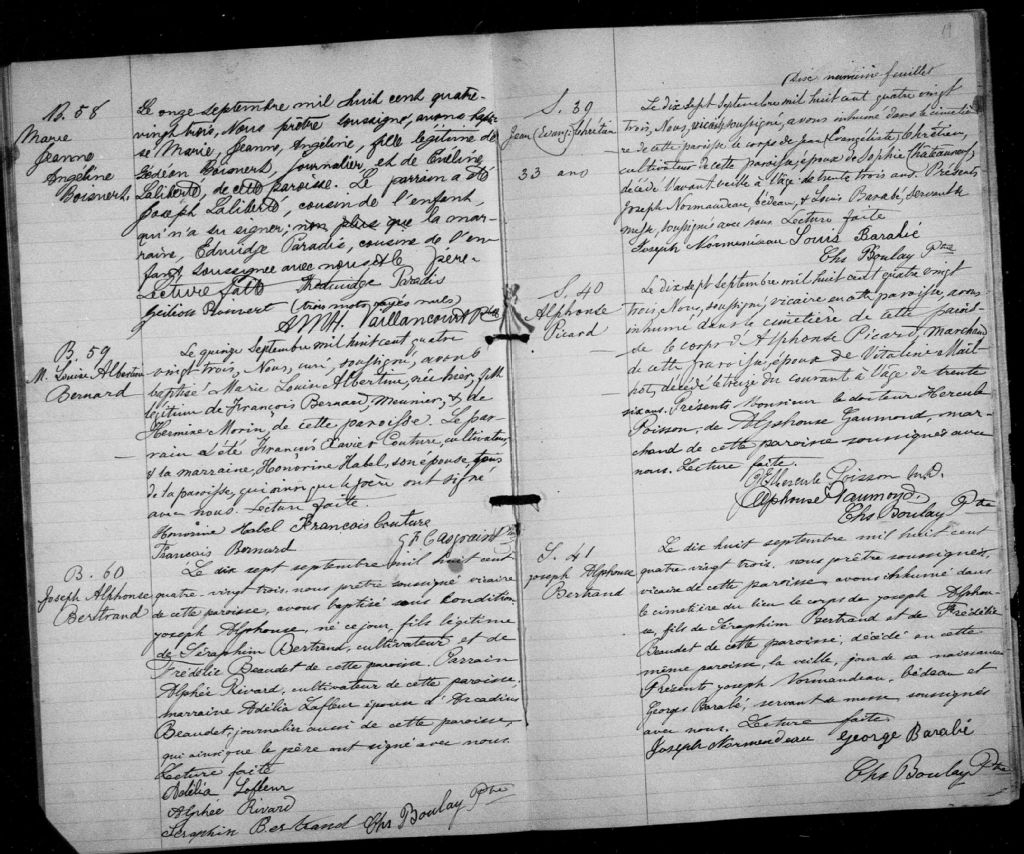 B. 58
Marie
Jeanne
Angéline
Boisvert
Le onze septembre mil huit cent quatre-
vingt trois, Nous prêtre soussigné, avons bapti-
sé Marie, Jeanne, Angéline, fille légitime de
Gédéon Boisvert, journalier, et de Eveline
Laliberté, de cette paroisse. Le parrain a été
Joseph Laliberté, cousin de l'enfant,
qui n'a su signer; non plus que la mar-
raine, Edwidge Paradis, cousine de l'en-
fant, soussignée avec nous et le père
Lecture faite Hedwidge Paradis
Gédéon Boisvert (trois mots rayés nuls)
Vaillancourt Ptre
B. 59
M. Louise Albertine
Bernard
Le quinze septembre mil huit cent quatre
vingt trois, Nous, curé, soussigné, avons
baptisé Marie Louise Albertine, née hier, fille
légitime de François Bernard, Meunier, & de
Hermine Morin, de cette paroisse. Le par-
rain a été François Xavier Couture, cultivateur,
& la marraine, Honorine Habel, son épouse, tous
de la paroisse, qui ainsi que le père ont signé
avec nous. Lecture faite.
Honorine Habel François Couture
François Bernard Casgrain Ptre
B. 60
Joseph Alphonse
Bertrand
Le dix sept septembre mil huit cent
quatre-vingt trois, nous prêtre soussigné vicaire
de cette paroisse, avons baptisé sous condition
Joseph Alphonse, né ce jour, fils légitime
de Séraphin Bertrand, cultivateur et de
Frédélie Beaudet de cette paroisse. Parrain
Alphée Rivard, cultivateur de cette paroisse,
marraine Adélia Lafleur épouse d'Arcadius
Beaudet, journalier aussi de cette paroisse,
qui ainsi que le père ont signé avec nous.
Lecture faite
Adélia Lafleur
Alphée Rivard
Séraphin Bertrand Chs Boulay Ptre
(Dix neuvième feuillet
S. 39
Jean (Evang.) Chrétien
33 ans
Le dix sept septembre mil huit cent quatre vingt
trois, Nous, vicaire soussigné, avons inhumé dans le cimetiè-
re de cette paroisse le corps de Jean Evangéliste Chrétien,
cultivateur de cette paroisse, époux de Sophie Chateauvert,
décédé l'avant-veille à l'âge de trente trois ans. Présents
Joseph Normandeau, bedeau, & Louis Barabé, servant de
messe, soussignés avec nous Lecture faite
Joseph Normendeau Louis Barabé
Chs Boulay Ptre
S. 40
Alphonse
Picard
Le dix sept septembre mil huit cent quatre vingt
trois, Nous, soussigné, vicaire en cette paroisse, avons
inhumé dans le cimetière de cette parois-
se le corps d'Alphonse Picard, marchand
de cette paroisse, époux de Vitaline Mail-
hot, décédé le treize du courant à l'âge de trente
six ans. Présents Monsieur le docteur Hercule
Poisson, de Alphonse Gaumond, mar-
chand de cette paroisse soussignés avec
nous. Lecture faite.
Hercule Poisson M.D.
Alphonse Gaumond.
Chs Boulay Ptre
S. 41
Joseph Alphonse
Bertrand
Le dix huit septembre mil huit cent
quatre-vingt trois, nous prêtre soussignés,
vicaire de cette paroisse avons inhumé dans
le cimetière du lieu le corps de Joseph Alphon-
se, fils de Séraphin Bertrand et de Frédélie
Beaudet de cette paroisse, décédé en cette
même paroisse, la veille, jour de sa naissance
Présents Joseph Normandeau, bédeau et
Georges Barabé, servant de messe, soussignés
avec nous. Lecture faite.
Joseph Normendeau George Barabé
Chs Boulay Ptre